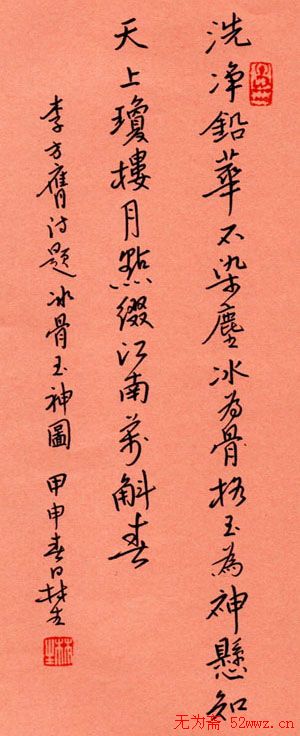 洗净鉛華不染塵冰为骨格玉為神懸知
天上瓊樓月點缀江南萬斛春
李方膺诗題冰骨玉神圖 甲申春日
无为斋 52wwz.cn